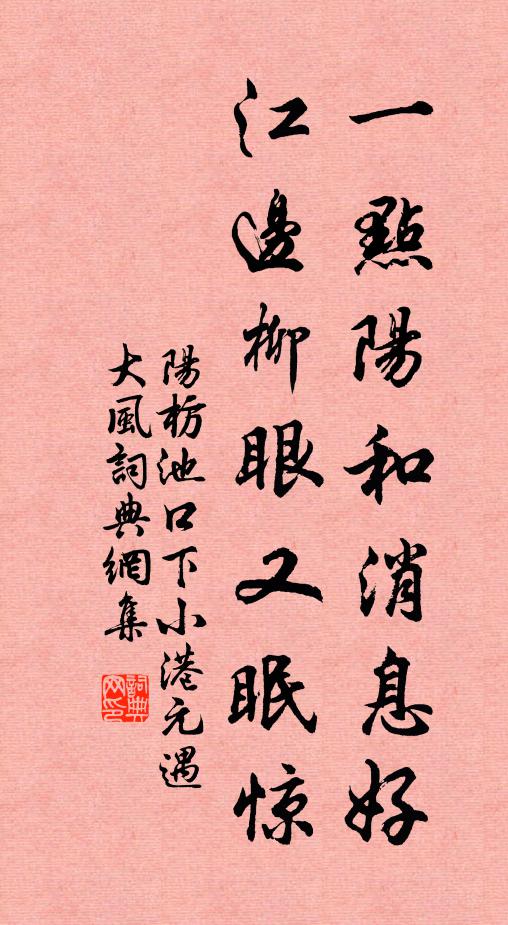 一點陽和消息好
江邊柳眼又眠惊
陽枋池口下小港元遇
大風詞典網集
詞典網印